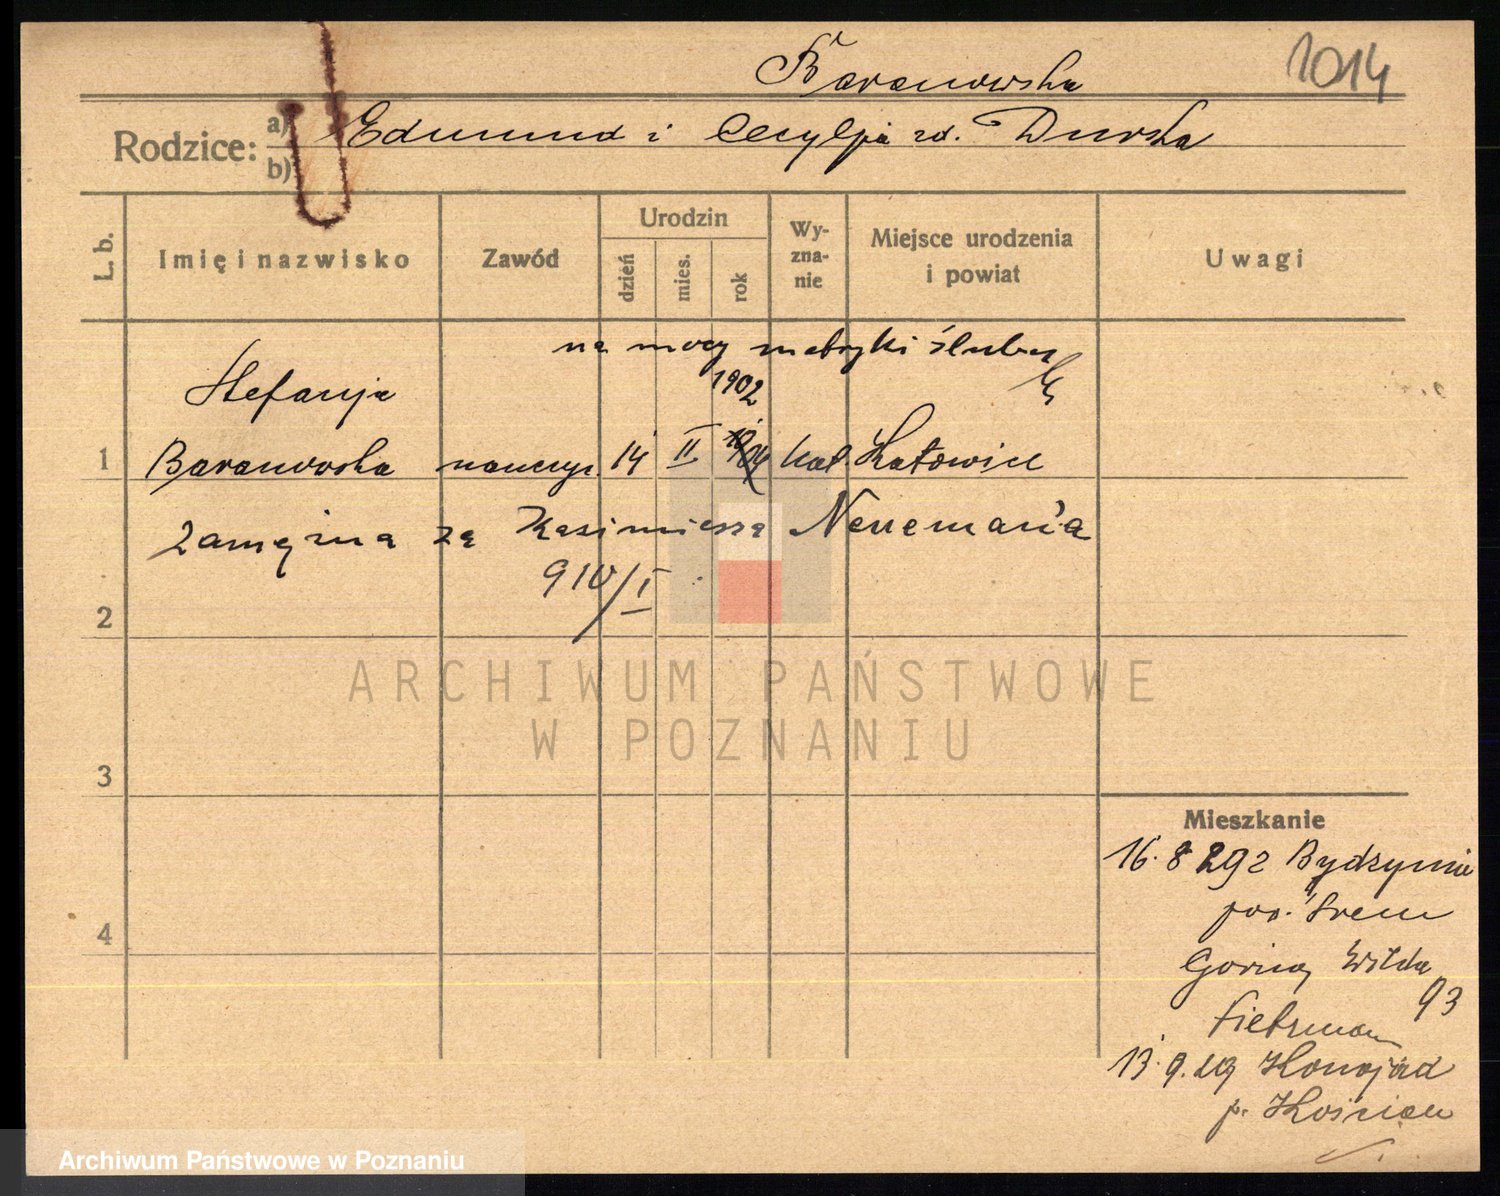 Baranowska
1014
Rodzice: a) Edmund i Cecylja zd. Durska
b)
L. b.
Imię i nazwisko
Zawód
Urodzin
dzień
mies.
rok
Wy-
zna-
nie
Miejsce urodzenia
i powiat
Uwagi
na mocy metryki ślubu
Stefanja
1902
1 Baranowska nauczyc. 14 II 1904 kat. Katowice
zamężna za Kazimierza Neuemann'a
910/I
2
ARCHIWUM PAŃSTWOWE
W POZNANIU
3
Mieszkanie
16. 8 29 z Bydzynia
pow. Śrem
4
Górna Wilda
93
Fietzman
13. 9. 29 Konojad
p. Kościan
Archiwum Państwowe w Poznaniu